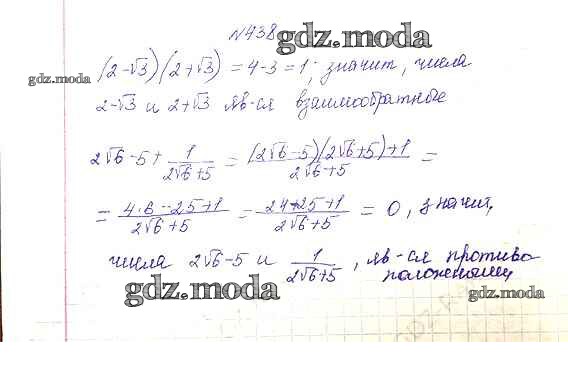 №438
gdz.moda
(2-√3)(2+√3) = 4-3 = 1; значит, числа
gdz.moda
2-√3 и 2+√3 яв-ся взаимообратные
2√6-5+ 1/(2√6+5) = ((2√6-5)(2√6+5)+1)/(2√6+5) =
= (4·6-25+1)/(2√6+5) = (24-25+1)/(2√6+5) = 0, значит,
числа 2√6-5 и 1/(2√6+5), яв-ся противо
положеными
gdz.moda
gdz.moda